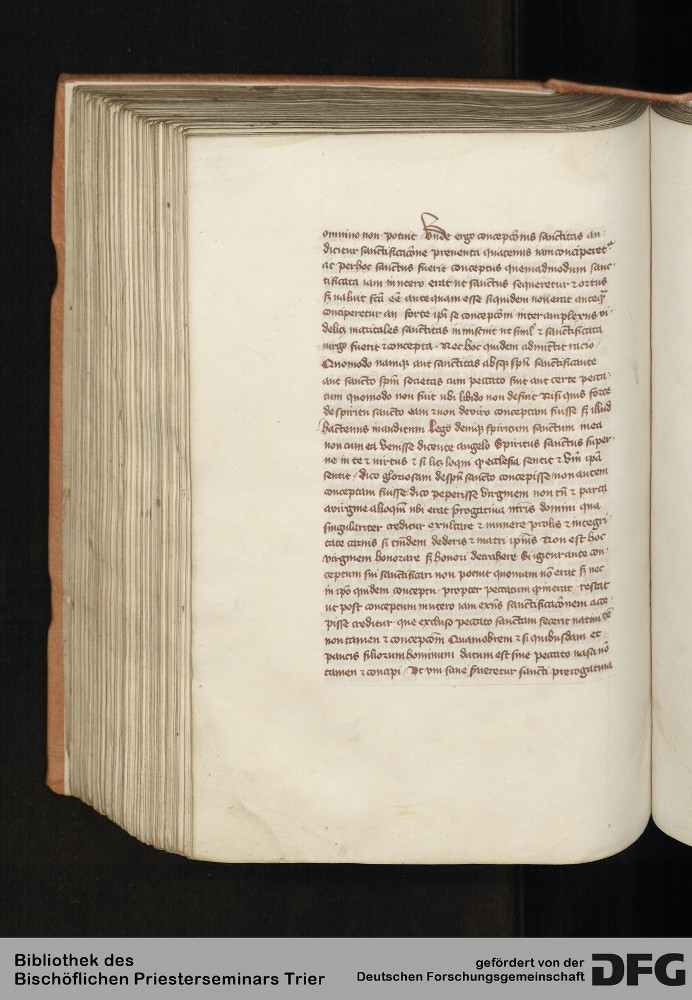 omnino non potuit Unde ergo concepcōnis sanctitas an
dicitur sanctificacōne preventa quatenus iam conciperetᵣ
ac perhoc sanctus fuerit conceptus quemadmodum sanc
tificata iam in utero erat ut sanctus sequeretur ⁊ ortus
sꝫ valuit scā eē ante quam esse siquidem non erat anteqͣ
conciperetur an forte ip̄i se concepcōm inter amplexus vi
delicꝫ maritales sanctitas inmiscuit ut simul ⁊ sanctificata
virgo fuerit ⁊ concepta · Nec hoc quidem admittit racio /
Quomodo namqꝫ aut sanctitas absqꝫ spū sanctificante
aut sancto spūi societas cum peccato fuit aut certe pecca
tum quomodo non fuit ubi libido non defuit Nisi quis forte
de spiritu sancto eam ⁊ non de viro conceptam fuisse sꝫ illud
hactenus inauditum Lego deniqꝫ spiritum sanctum in ea
non cum ea venisse dicente angelo Spiritus sanctus super
ne in te ⁊ virtus ⁊ si licꝫ loqui qͩ ecclesia sentit ⁊ vm̄ ip̄a
sentit / dico gloriosam de spū sancto concepisse non autem
conceptam fuisse dico peperisse virginem non tn̄ ⁊ parta
a virgine alioquin ubi erat p̄rogatiua mr̄is domini qua
singulariter creditur exultare ⁊ munere prolis ⁊ integri
tate carnis si tm̄dem dederis ⁊ matri ipīus Non est hoc
virginem honorare sꝫ honori detrahere Si igitur ante con
ceptum sui sanctificari non potuit quoniam nō erat sꝫ nec
in ip̄o quidem conceptu propter peccatum qͩ inerat · restat
ut post conceptum in utero iam exn̄s sanctificacōnem acce
pisse creditur · que excluso peccato sanctam fecerit natiuitē
non tamen ⁊ concepcōm Quamobrem ⁊ si quibusdam et
paucis filiorum hominum datum est sine peccato nasci nō
tamen ⁊ concipi / Ut vni sane s̄ueretur sancti prerogatiua
Bibliothek des
Bischöflichen Priesterseminars Trier
gefördert von der
Deutschen Forschungsgemeinschaft
DFG